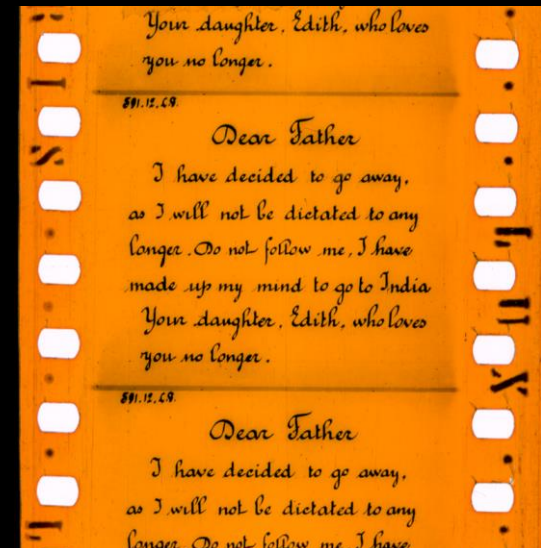 Your daughter, Edith, who loves
you no longer.
591.12.C.G.
Dear Father
I have decided to go away,
as I will not be dictated to any
longer. Do not follow me, I have
made up my mind to go to India
Your daughter, Edith, who loves
you no longer.
591.12.C.G.
Dear Father
I have decided to go away,
as I will not be dictated to any
longer. Do not follow me, I have